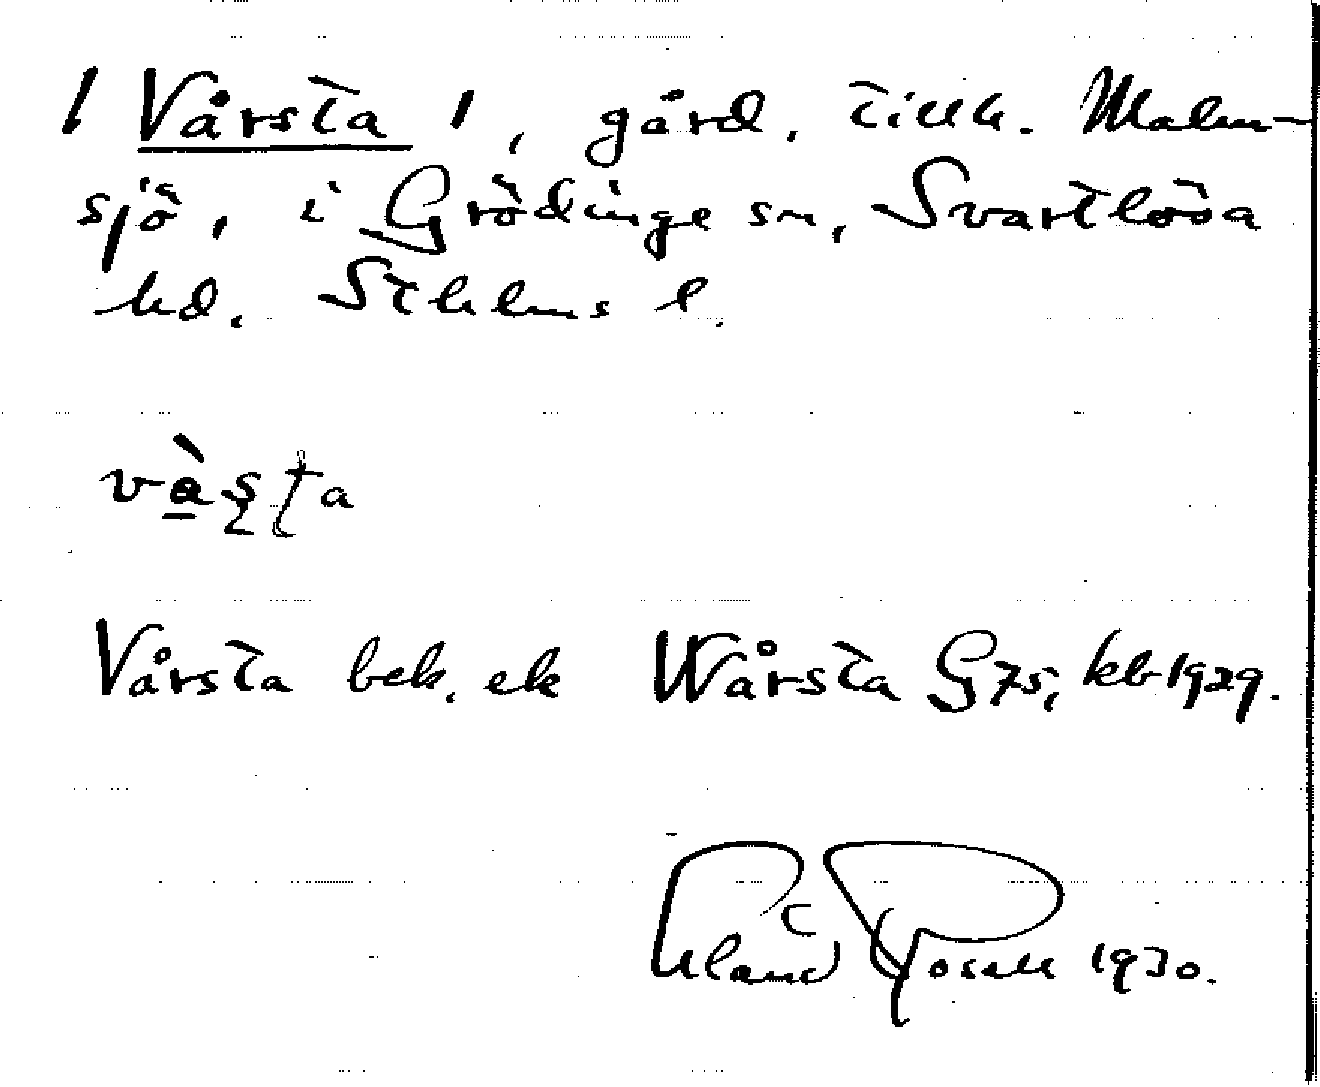 / Vårsta /, gård, tillh. Malm-
sjö, i Grödinge sn, Svartlösa
hd. Sthlms l.
Vårsta bek. ek Wårsta G 75, kb 1929.
Erland Rosell 1930.